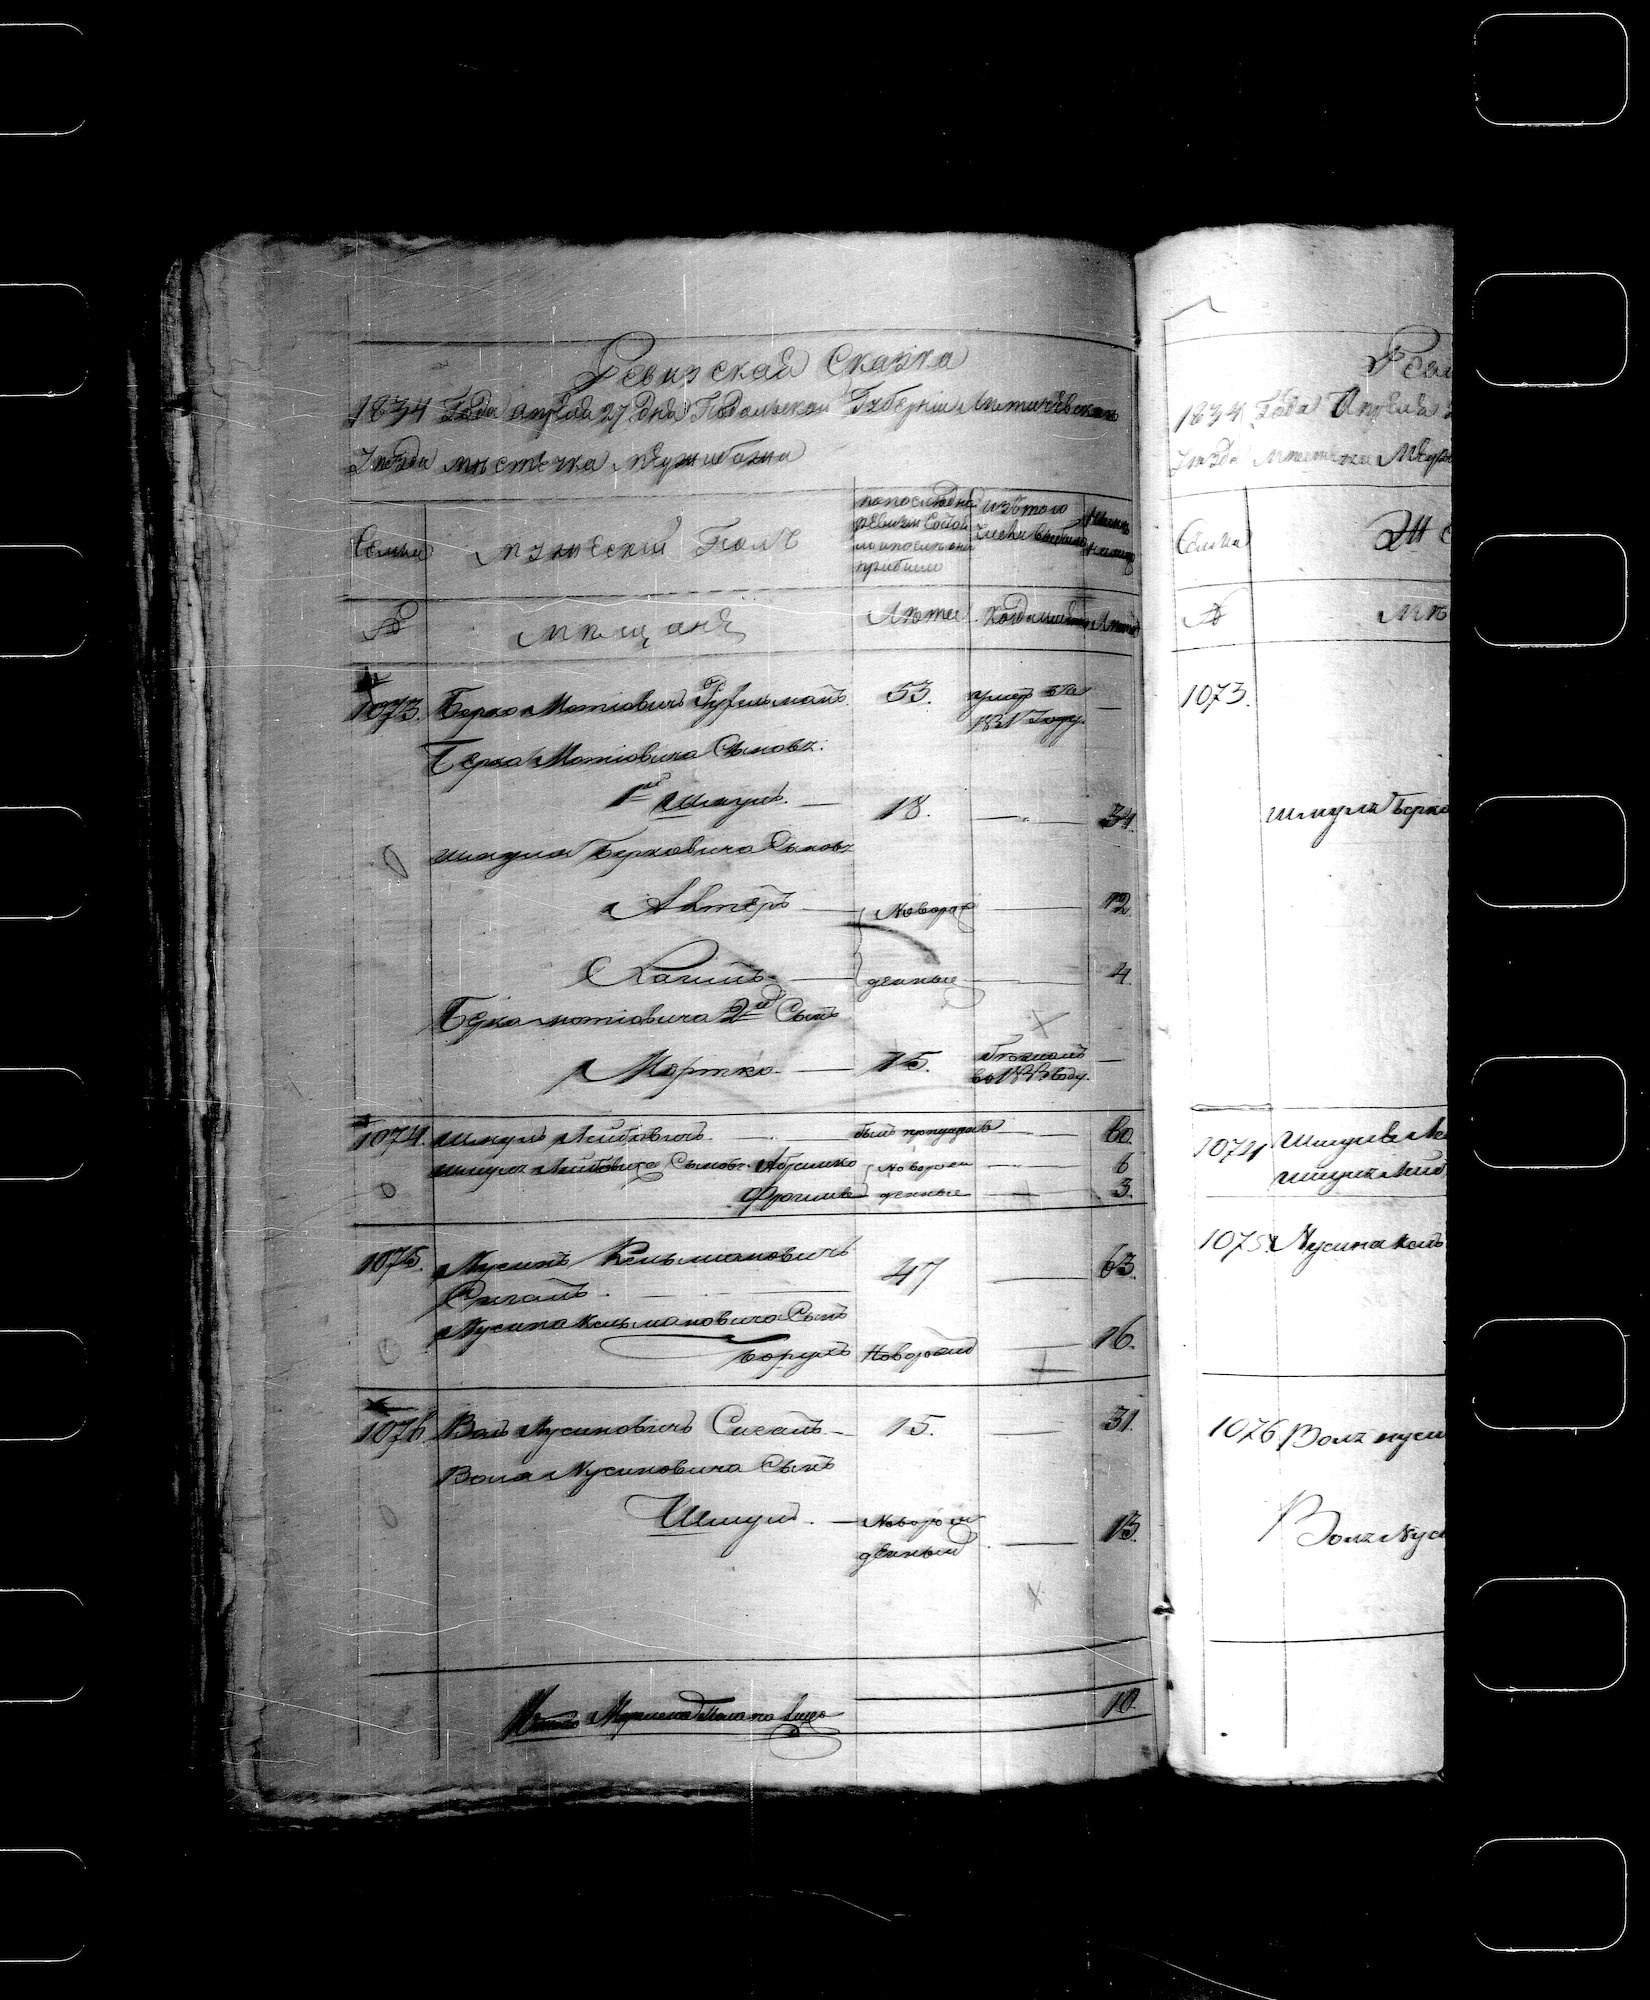 Ревизская Сказка
1834 Года апреля 27 дня Подольской Губернии Летичевскаго
Уезда местечка Меджибожа
Семьи
мужеский Полъ
по последней
ревизии Состоя
ло и после оной
прибыло
изъ того
числа выбыло
Ныне
на лицо
№
мещане
Лета
Когда именно
Лета
1073. Берко Мотіовичъ 53. умеръ въ —
1831 Году.
Берка Мотіовича Сыновья.
1й Шмуль. — 18. — 34.
Шмуля Берковича Сыновья
Алтеръ — Новорож — 12
Хаимъ — денные — 4.
Берка Мотіовича 2й Сынъ
Мортко — 15. —
1074. Шмуль Лейбовичъ — былъ пропущенъ — 60.
Шмуля Лейбовича Сыновья Абрамко Новорож — 6
Фроимъ денные — 3.
1075. Нусинъ Кельмановичъ 47 — 63.
Сигалъ.
Нусина Кельмановича Сынъ
Борухъ Новорожд — 16.
1076. Волъ Нусиновичъ Сигалъ — 15. — 31.
Вола Нусиновича Сынъ
Шмуль. — Новорож
денный — 13.
Итого Мужеска Пола на лицо 10.
Рев
1834 Года Апреля 2
Уезда местечка Меджи
Семьи
Же
№
Ме
1073.
Шмуля Берко
1074 Шмуля Ле
Шмуля Лейб
1075 Нусина Кель
1076 Вола Нуси
Вола Нуси